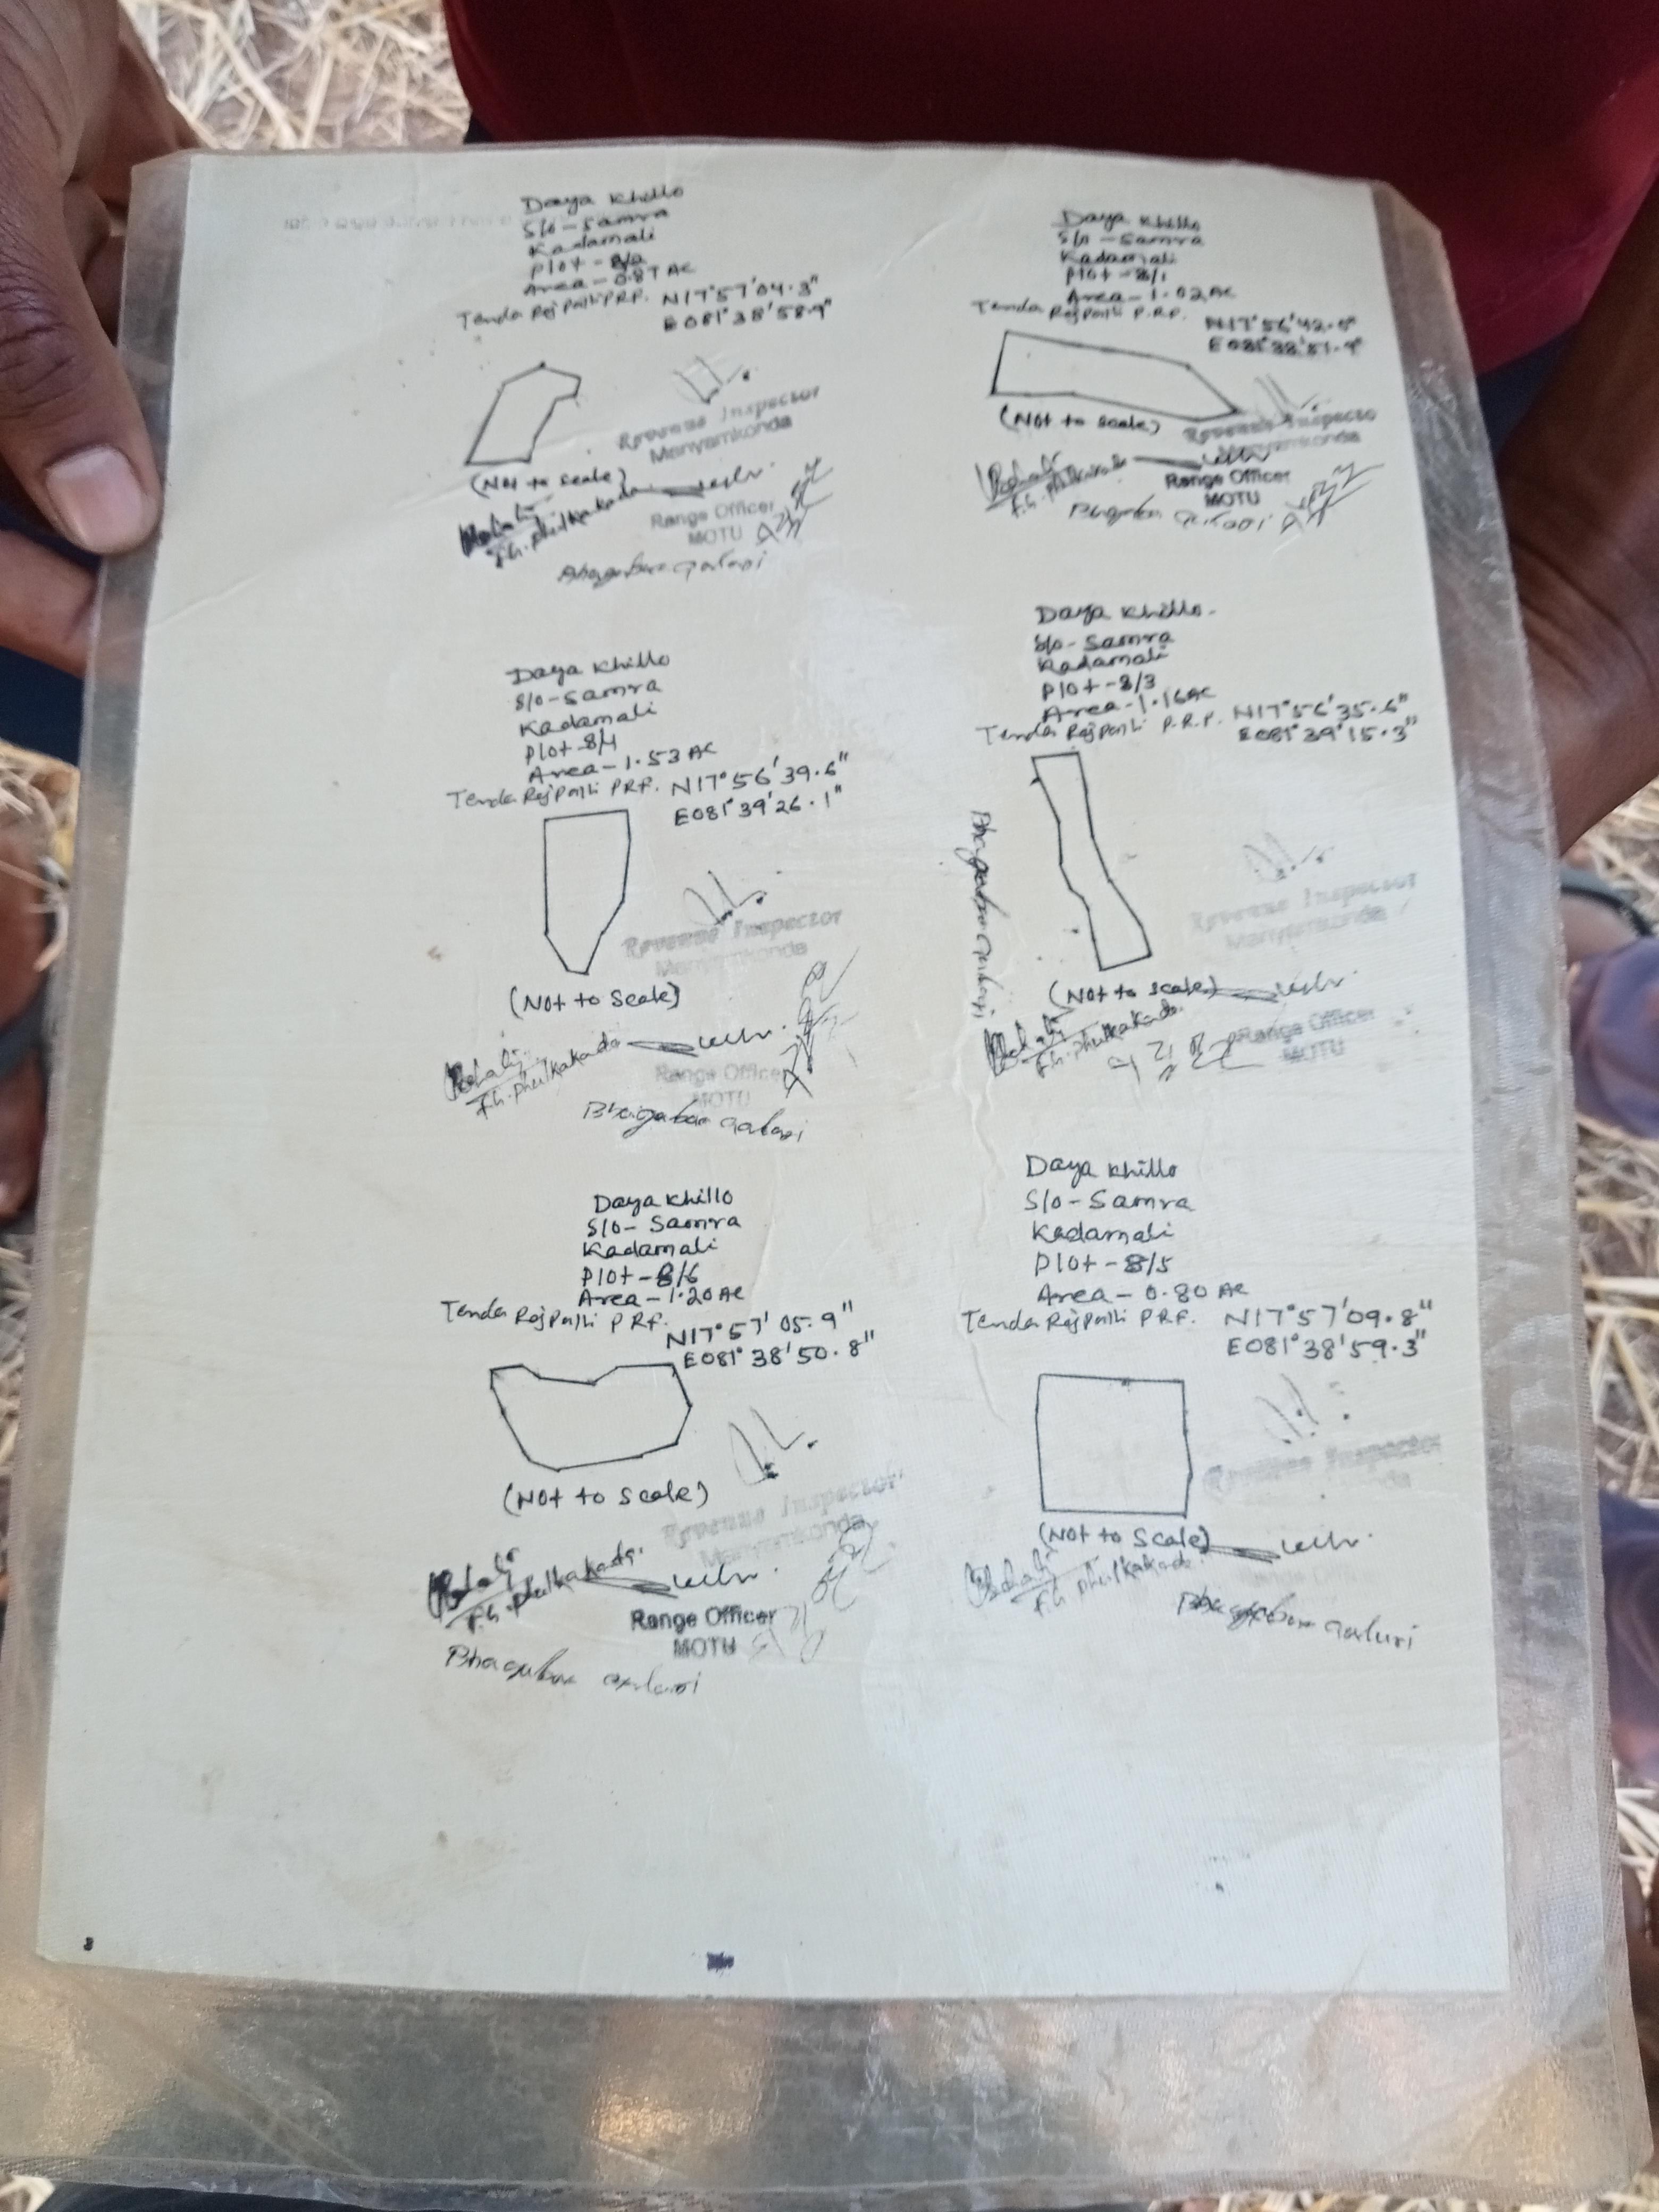 Daya Khillo
S/o - Samra
Kadamali
Plot - 8/2
Area - 0.87 AC
Tenda Rajpalli PRF. N17°57'04.3"
E081°38'58.9"
(Not to scale)
Revenue Inspector
Manyamkonda
F.G. Phulkakada
Range Officer
MOTU
Daya Khillo
S/o - Samra
Kadamali
Plot - 8/1
Area - 1.02 AC
Tenda Rajpalli P.R.F.
E081°38'51.9"
(Not to scale)
Revenue Inspector
Manyamkonda
F.G. Phulkakada
Range Officer
MOTU
Daya Khillo
S/o - Samra
Kadamali
Plot - 8/4
Area - 1.53 AC
Tenda Rajpalli PRF. N17°56'39.6"
E081°39'26.1"
(Not to Scale)
Revenue Inspector
Manyamkonda
F.G. Phulkakada
Range Officer
MOTU
Daya Khillo.
S/o - Samra
Kadamali
Plot - 8/3
Area - 1.16 AC
Tenda Rajpalli P.R.F. N17°56'35.6"
E081°39'15.3"
(Not to scale)
Revenue Inspector
Manyamkonda
F.G. Phulkakada
Range Officer
MOTU
Daya Khillo
S/o - Samra
Kadamali
Plot - 8/6
Area - 1.20 AC
Tenda Rajpalli PRF.
N17°57'05.9"
E081°38'50.8"
(Not to Scale)
Revenue Inspector
Manyamkonda
F.G. Phulkakada.
Range Officer
MOTU
Daya Khillo
S/o - Samra
Kadamali
Plot - 8/5
Area - 0.80 AC
Tenda Rajpalli PRF. N17°57'09.8"
E081°38'59.3"
(Not to Scale)
Revenue Inspector
F.G. Phulkakada